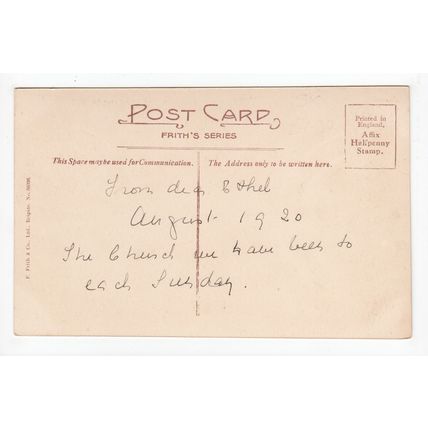 POST CARD
FRITH'S SERIES
Printed in
England.
Affix
Halfpenny
Stamp.
This Space may be used for Communication.
The Address only to be written here.
From dear Ethel
August 1920
The Church we have been to
each Sunday.
F. Frith & Co., Ltd., Reigate. No.